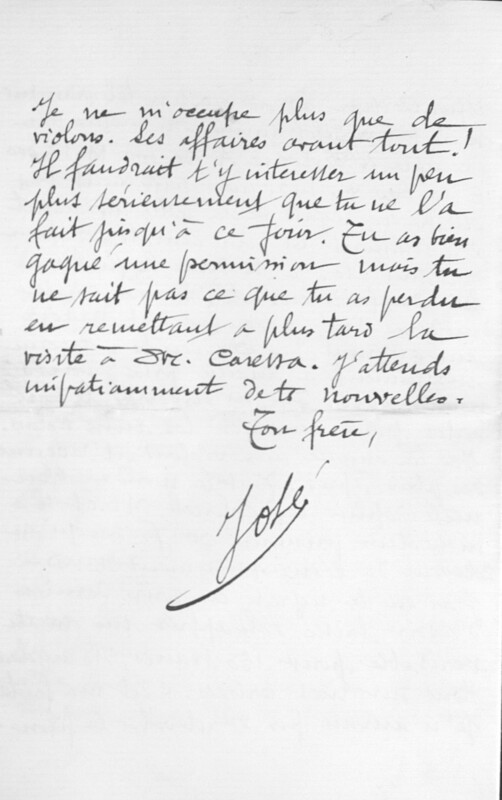 Je ne m'occupe plus que de
violons. Les affaires avant tout!
Il faudrait t'y interesser un peu
plus serieusement que tu ne l'a
fait jusqu'à ce jour. Tu as bien
gagné une permission mais tu
ne sait pas ce que tu as perdu
en remettant a plus tard la
visite à Mr. Caressa. J'attends
impatiamment de te nouvelles.
Ton frère,
José